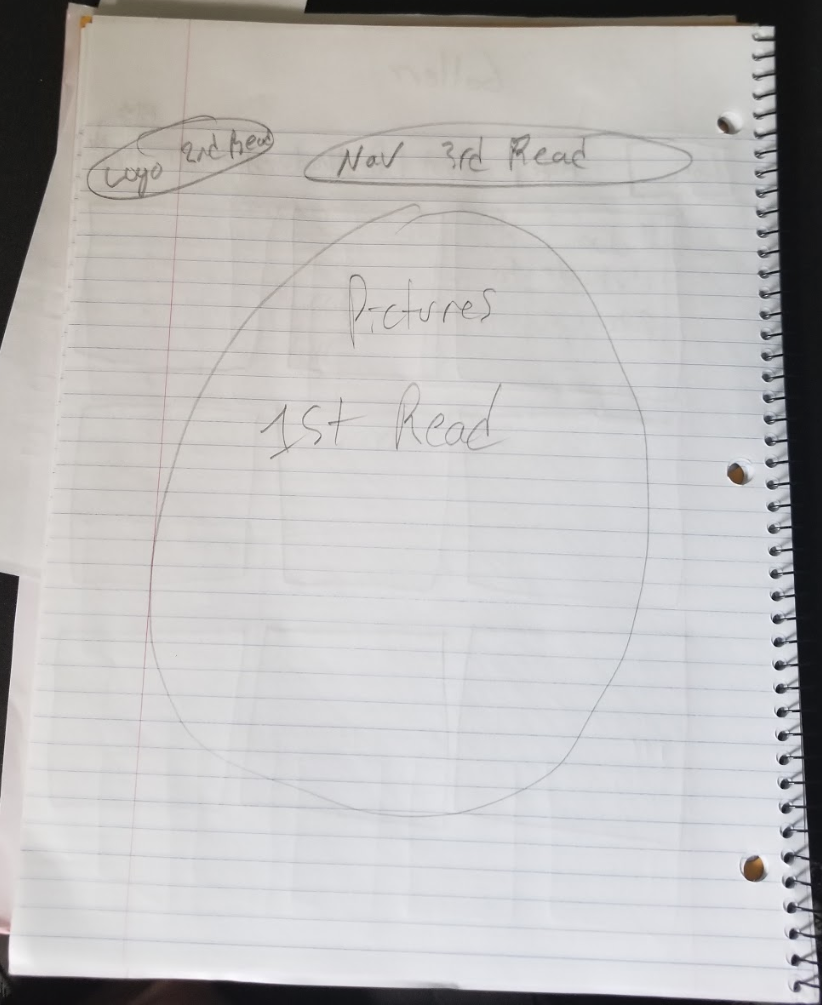 Logo 2nd Read
Nav 3rd Read
Pictures
1st Read